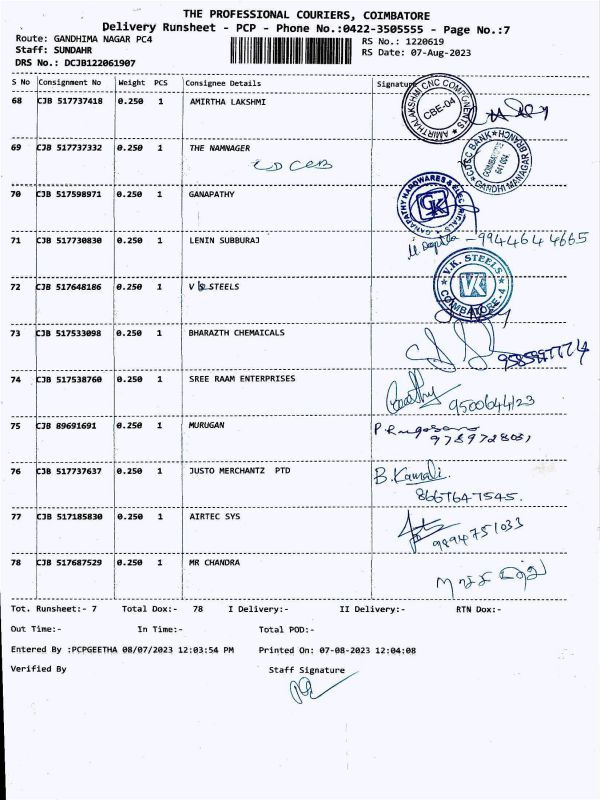 THE PROFESSIONAL COURIERS, COIMBATORE
Delivery Runsheet - PCP - Phone No.:0422-3505555 - Page No.:7
Route: GANDHIMA NAGAR PC4
RS No.: 1220619
Staff: SUNDAHR
RS Date: 07-Aug-2023
DRS No.: DCJB122061907
S No Consignment No Weight PCS Consignee Details Signature
68 CJB 517737418 0.250 1 AMIRTHA LAKSHMI
AMIRTHALAKSHMI CNC COMPONENTS
CBE-04
69 CJB 517737332 0.250 1 THE NAMNAGER
CDCCB
BANK
GANDHI MANAGAR BRANCH
COIMBATORE
641 004
70 CJB 517598971 0.250 1 GANAPATHY
GANAPATHY HARDWARES & ELECTRICALS
GK
71 CJB 517730830 0.250 1 LENIN SUBBURAJ
- 9944644665
72 CJB 517648186 0.250 1 V K STEELS
V.K. STEELS
VK
COIMBATORE-4
73 CJB 517533098 0.250 1 BHARAZTH CHEMAICALS
74 CJB 517538760 0.250 1 SREE RAAM ENTERPRISES
9500644123
75 CJB 89691691 0.250 1 MURUGAN
9789728031
76 CJB 517737637 0.250 1 JUSTO MERCHANTZ PTD
B.Kamali.
8667647545.
77 CJB 517185830 0.250 1 AIRTEC SYS
9894751033
78 CJB 517687529 0.250 1 MR CHANDRA
Tot. Runsheet:- 7 Total Dox:- 78 I Delivery:- II Delivery:- RTN Dox:-
Out Time:- In Time:- Total POD:-
Entered By :PCPGEETHA 08/07/2023 12:03:54 PM Printed On: 07-08-2023 12:04:08
Verified By Staff Signature